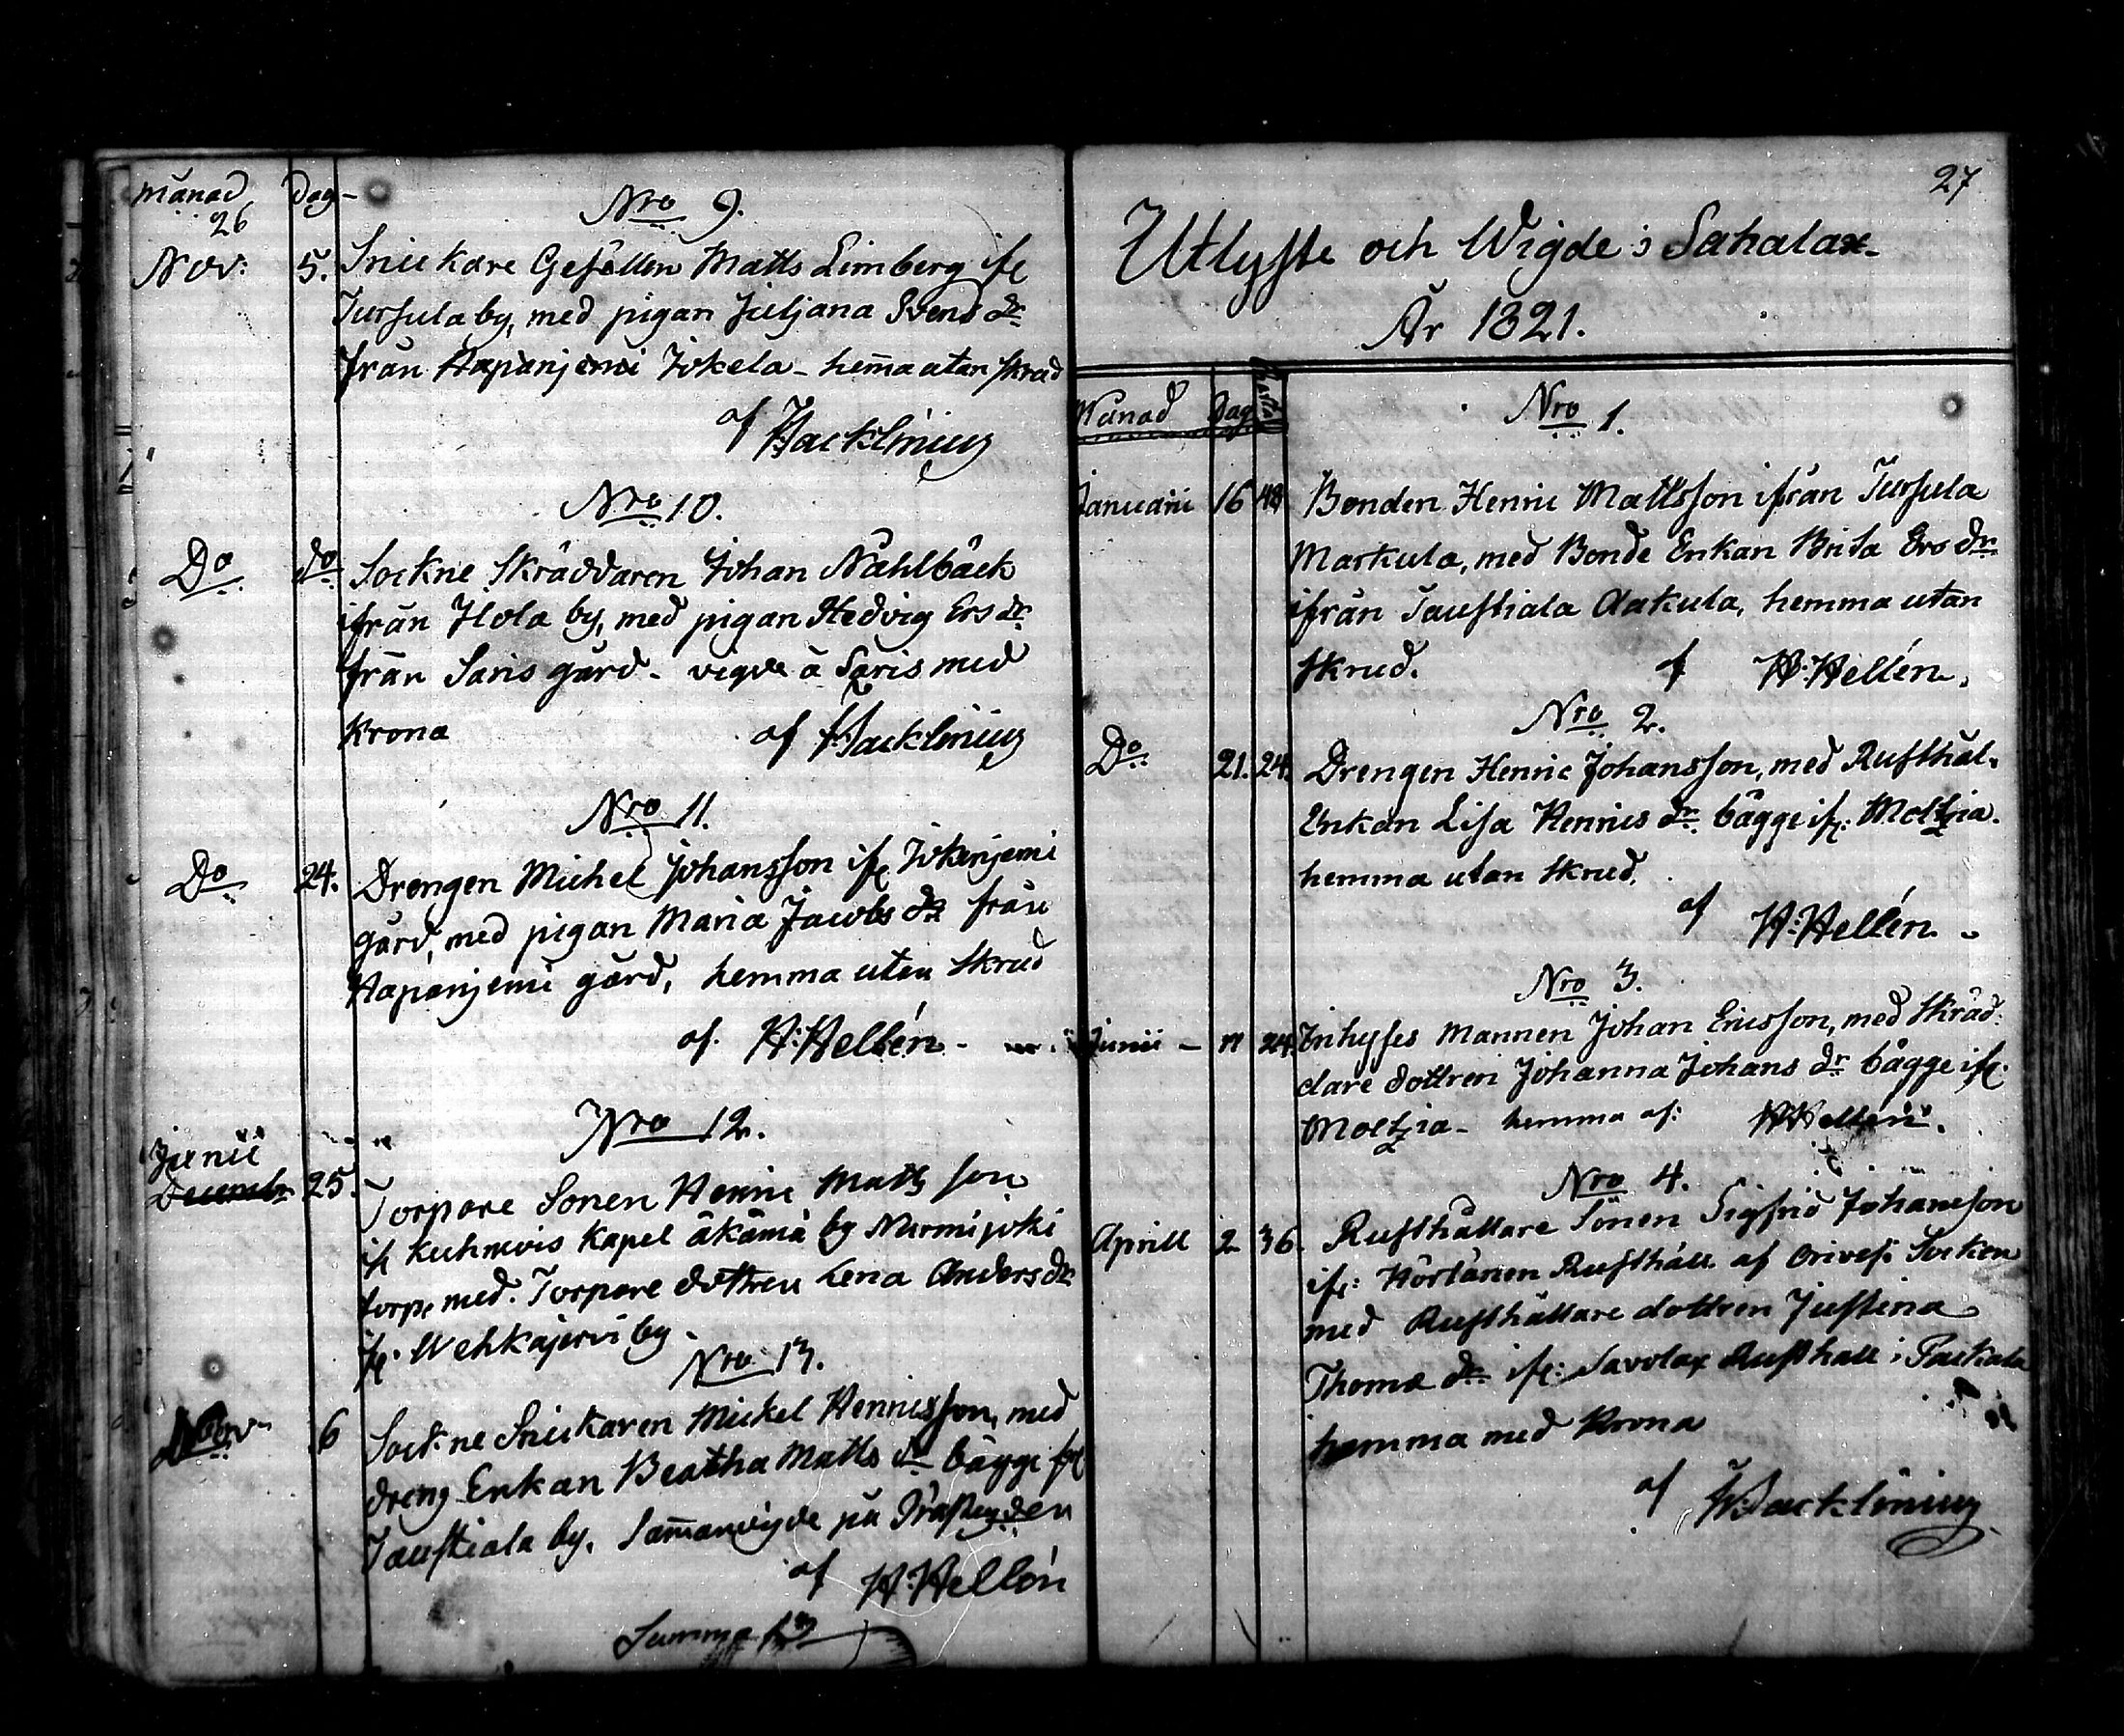 Månad Dag
26
Nro 9.
Nov: 5. Snickare Gesällen Matts Limberg ifr
Tursula by, med pigan Juljana Svens dr
från Hapanjemi Jokela - hem̄a utan skrud
af Hacklinius
Nro 10.
Do do Sockne Skräddaren Johan Nåhlbäck
ifrån Ilola by, med pigan Hedvig Ers dr
från Saris gård - vigde å Saris med
krona af Hacklinius
Nro 11.
Do 24. Drengen Michel Johansson ifr Jokenjemi
gård, med pigan Maria Jacobs dr från
Hapanjemi gård, hemma utan skrud
af. H: Hellén
Nro 12.
Junii
Decemb. 25. Torpare Sonen Henric Matts son
ifr Kuhmois Kapel äkämä by Nurmijoki
torp, med Torpare dottren Lena Anders dr
ifr. Wehkajervi by.
Nro 13.
Nov 6 Sockne Snickaren Mickel Henricsson, med
dreng Enkan Beatha Matts dr bägge ifr
Taustiala by. Sam̄anvigde på
af H: Hellén
Summa 13
27
Utlyste och Wigde i Sahalax
År 1821.
Månad Dag
Nro 1.
Januarii 16 48 Bonden Henric Mattsson ifrån Tursula
Markula, med Bonde Enkan Brita Ers dr
ifrån Taustiala Aakula, hemma utan
skrud. af H: Hellén.
Nro 2.
Do 21. 24. Drengen Henric Johansson, med Rusthål.
Enkan Lisa Henrics dr bägge ifr: Moltzia.
hemma utan skrud.
af H: Hellén
Nro 3.
Junii - 11 24. Inhyses Mannen Johan Ericsson, med Skräd:
dare dottren Johanna Johans dr bägge ifr:
Moltzia - hemma af: H Hellén.
Nro 4.
Aprill 2 36. Rusthållare Sonen Sigfrid Johansson
ifr: Hörtänen Rusthåll af Orivesi Socken
med Rusthållare dottren Justina
Thomæ dr ifr: Savolax Rusthåll i Pakkala
hemma med Krona
af Hacklinius